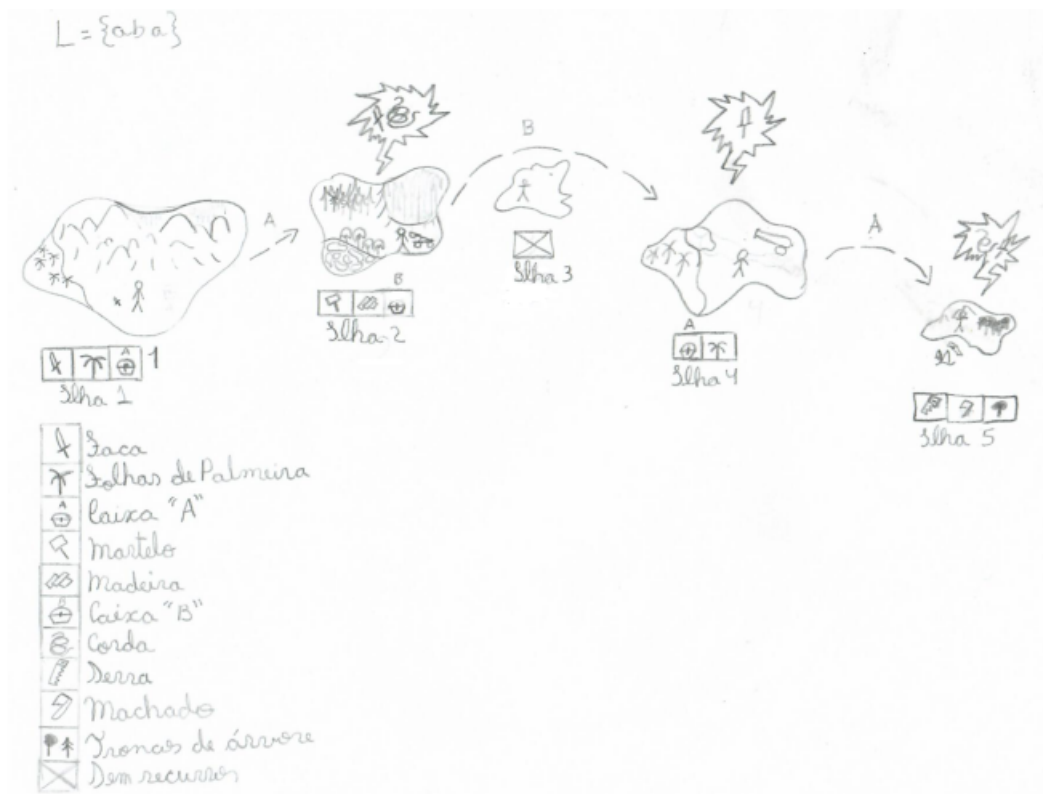 L = {aba}
B
A
A
B
Ilha 3
A
A
1
Ilha 2
Ilha 4
Ilha 1
Ilha 5
Faca
Folhas de Palmeira
A
Caixa "A"
Martelo
Madeira
B
Caixa "B"
Corda
Serra
Machado
Troncos de árvore
Sem recursos